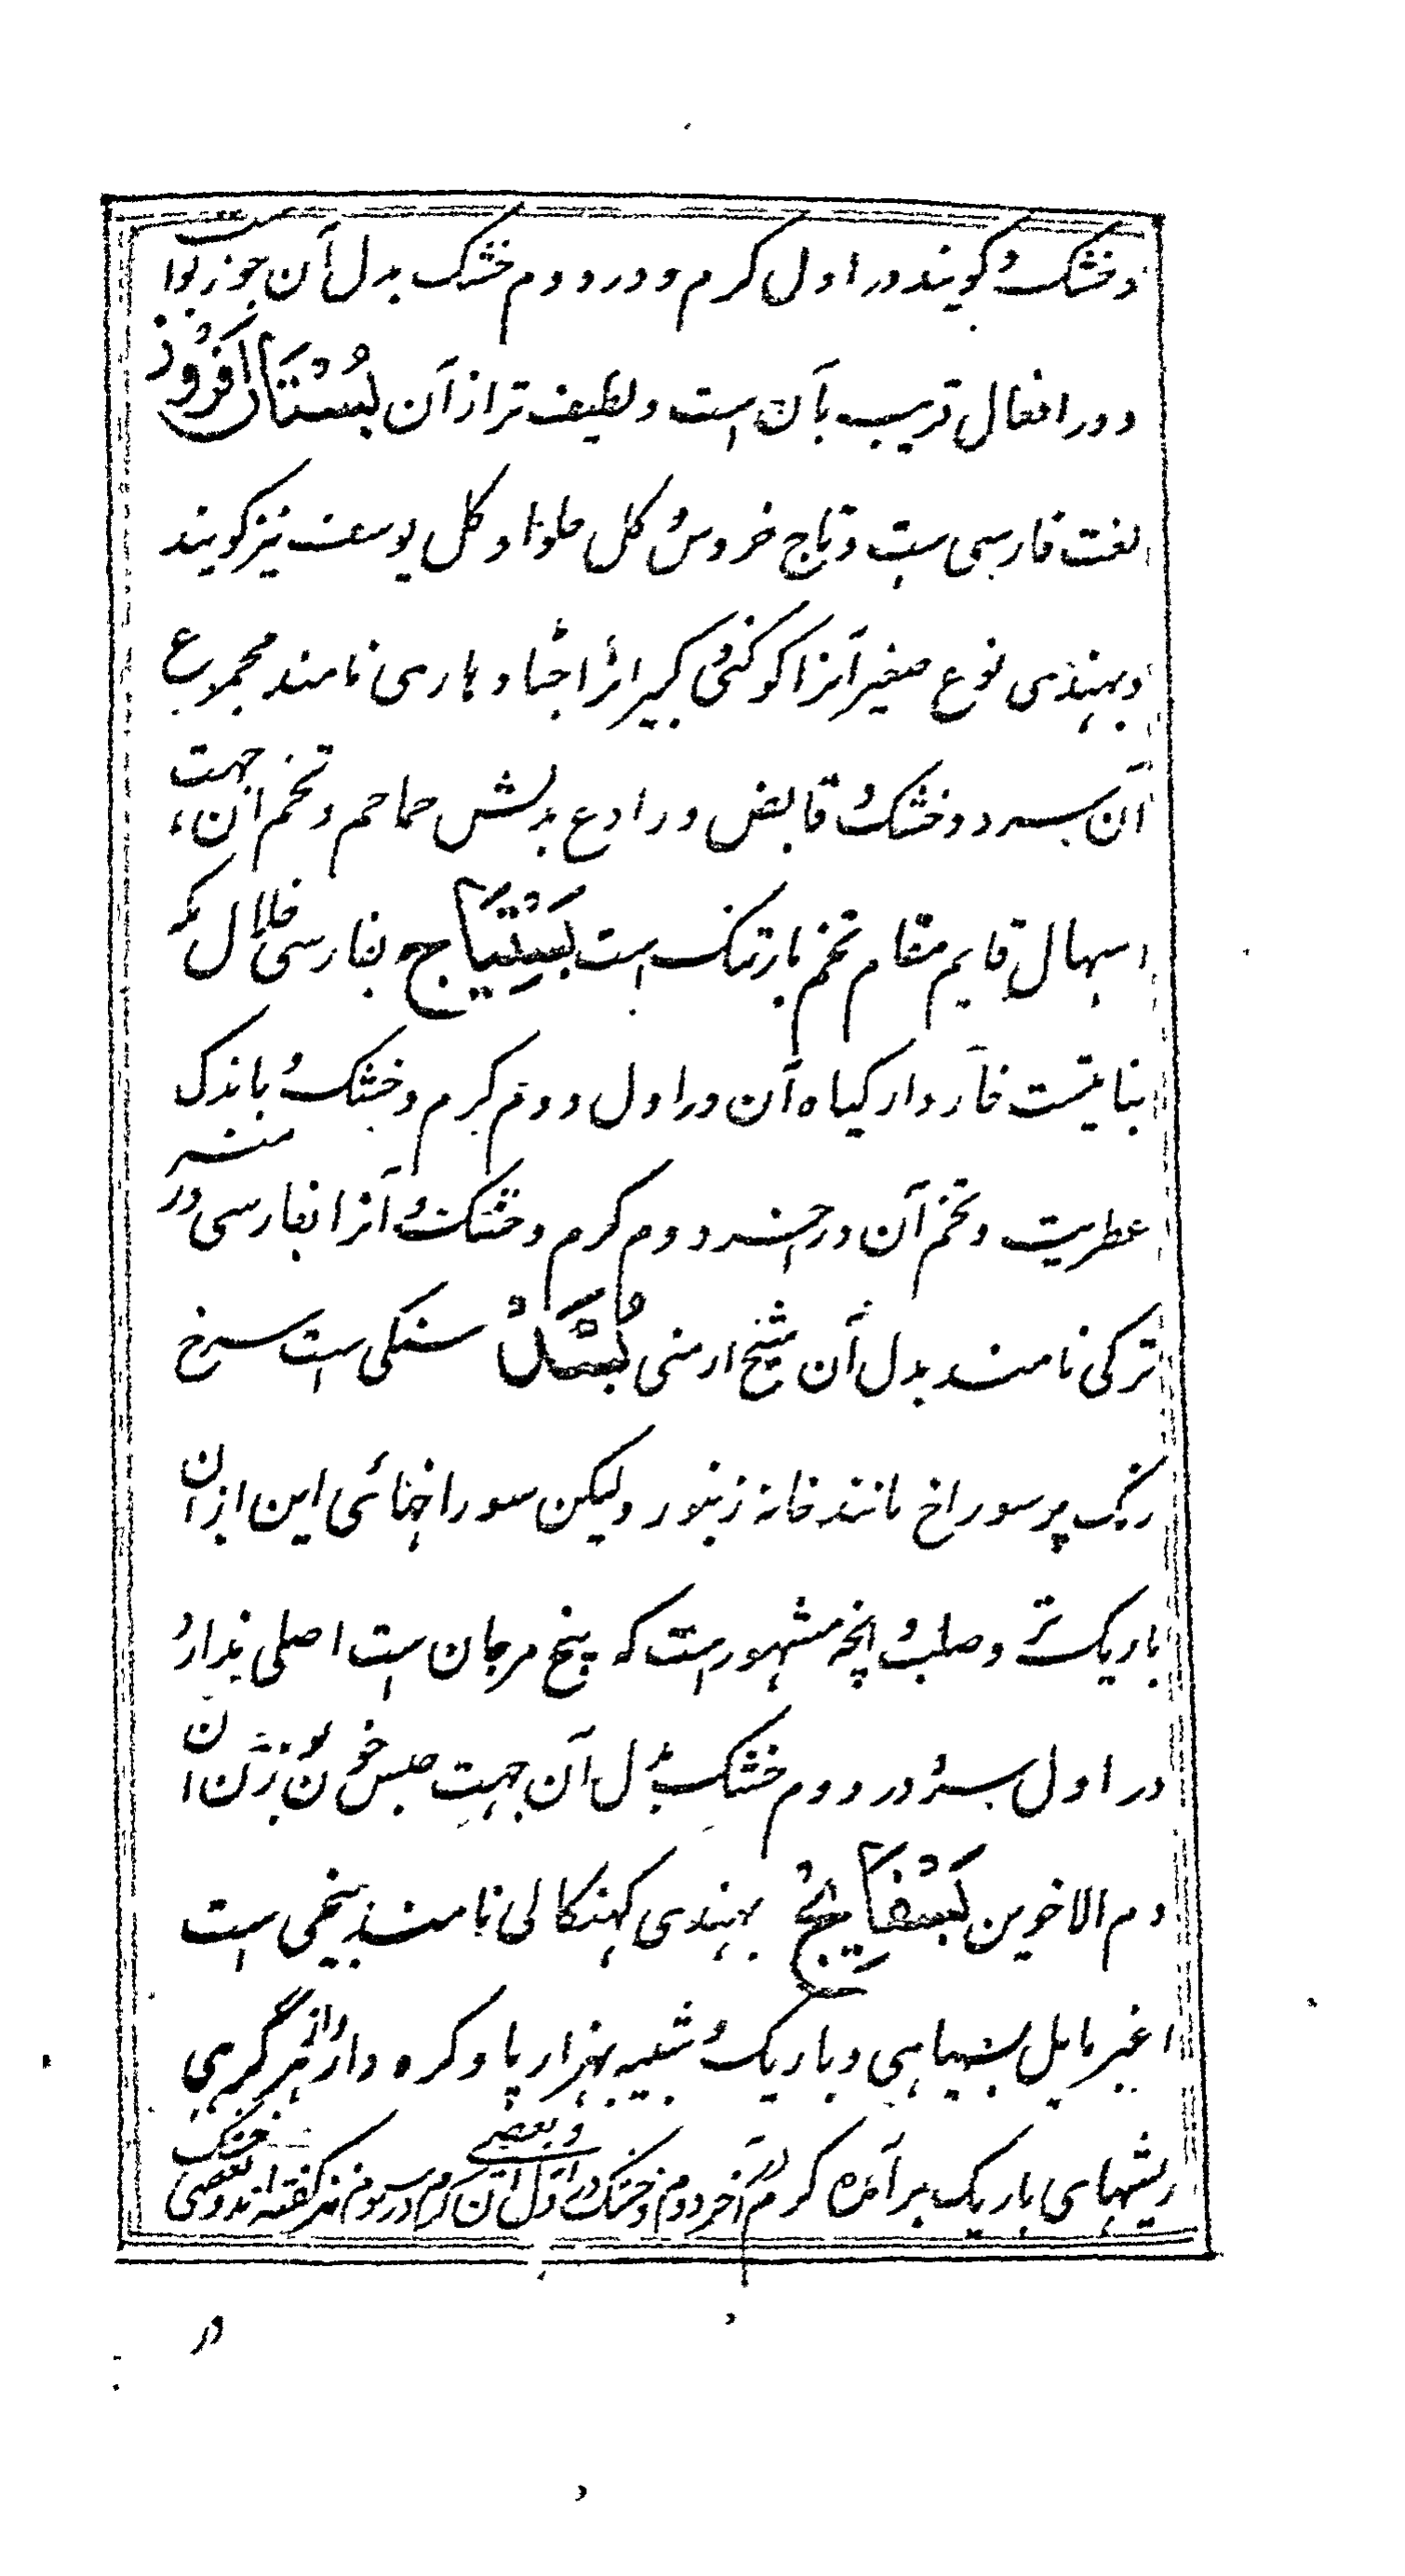 و خشک و گویند در اول گرم و در دوم خشک بدل آن جوز بوا ست
و در افعال قریب بآن است و لطیف تر از آن بُسْتَان اَفْرُوز
لغت فارسی ست و تاج خروس و گل حلوا و گل یوسف نیز گویند
و بهندی نوع صغیر آنرا کوکنی و کبیر انرا جٹا دہاری نامند مجموع
آن سرد و خشک و قابض و رادع بدلش حماحم و تخم آن، جهت
اسهال قایم مقام تخم بارتنگ است بَسْتِیَاج بفارسی خلال مکه
بناتیست خاردار گیاه آن در اول دوم گرم و خشک و باندک
عطریت و تخم آن در آخر دوم گرم و خشک و آنرا بفارسی درمنه
ترکی نامند بدل آن شیخ ارمنی بُسَّدْ سنگی است سرخ
رنگ پر سوراخ مانند خانه زنبور و لیکن سوراخهائی این از ان
باریک تر و صلب و انچه مشهور است که بیخ مرجان است اصلی ندارد
در اول سرد و در دوم خشک بدل آن جهت حبس خون بوزن ان
دم الاخوین بَسْفَایِجْ بهندی کهنکالی نامند بیخی است
اغبر مایل بسیاهی و باریک و شبیه بهزارپا و گره دار و از هر گرهی
ریشهای باریک برآمده گرم در آخر دوم و خشک در اول آن و بعضی گرم در سوم نیز گفته اند و بعضی خشک
در